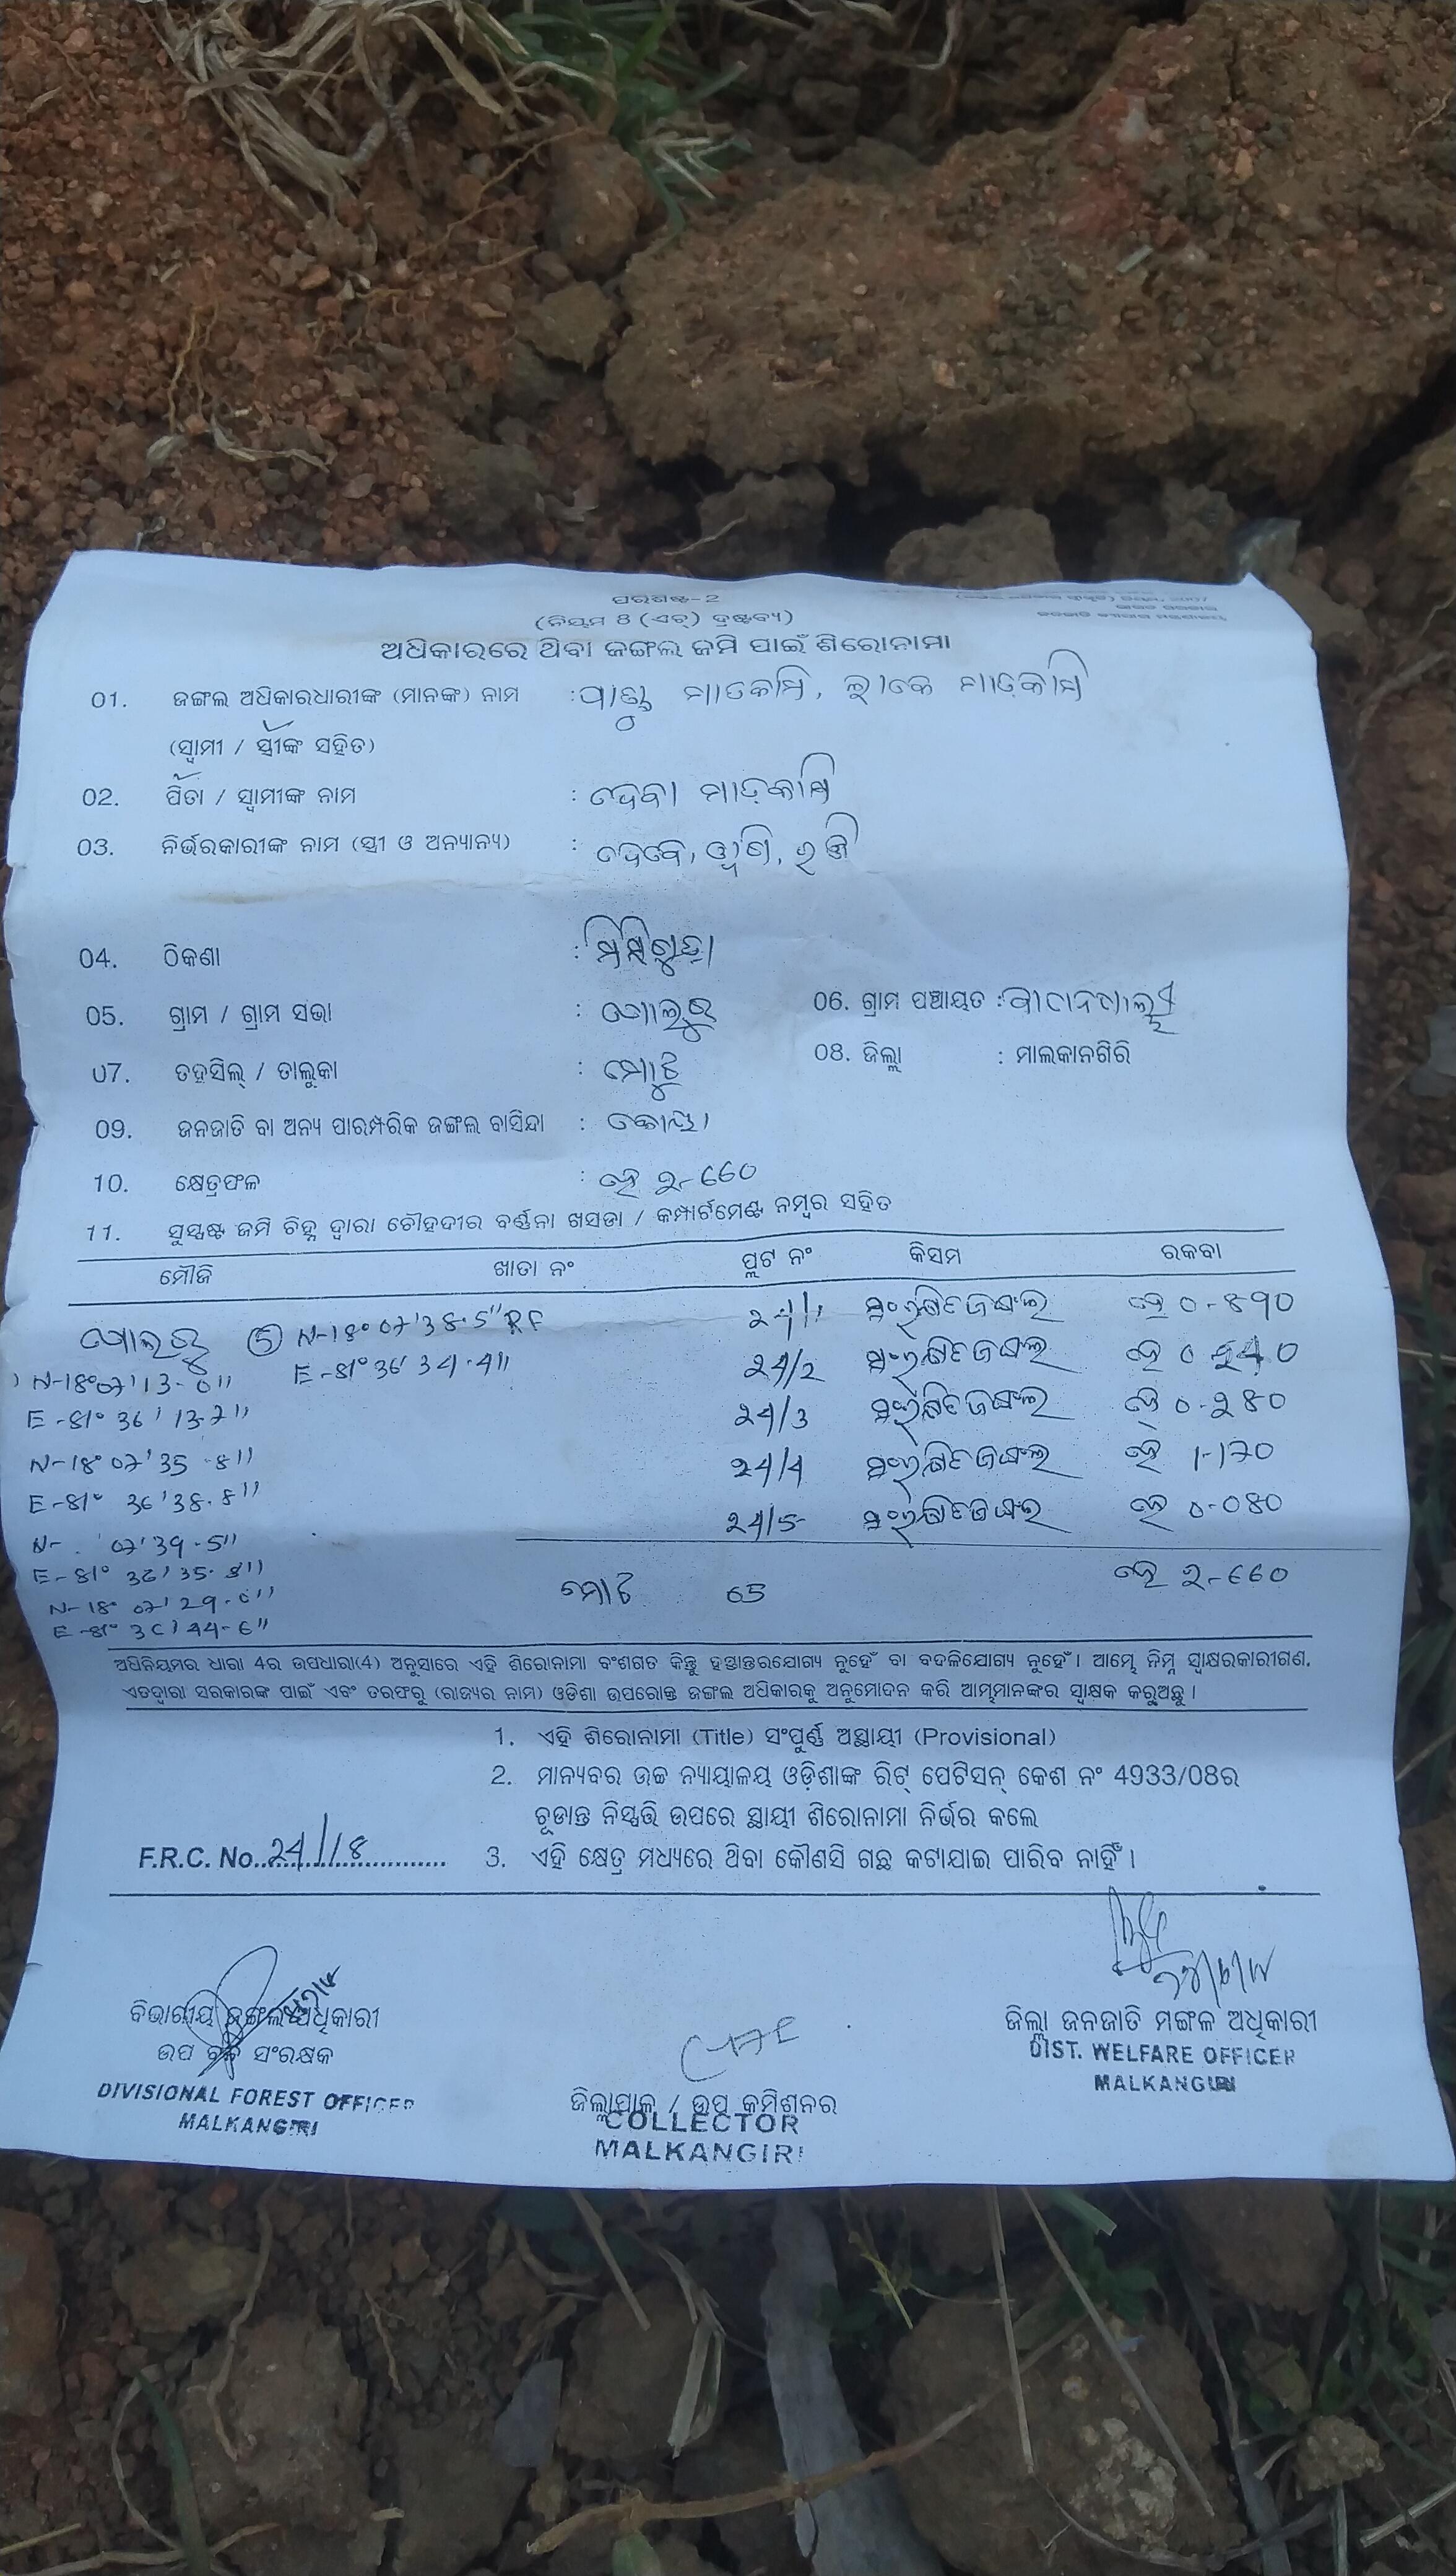 ପରିଶିଷ୍ଟ-2
(ନିୟମ 8 (ଏଚ୍) ଦ୍ରଷ୍ଟବ୍ୟ)
ଅଧିକାରରେ ଥିବା ଜଙ୍ଗଲ ଜମି ପାଇଁ ଶିରୋନାମା
01. ଜଙ୍ଗଲ ଅଧିକାରଧାରୀଙ୍କ (ମାନଙ୍କ) ନାମ : ମାଡକାମି, ମାଡ଼କାମି
(ସ୍ୱାମୀ / ସ୍ତ୍ରୀଙ୍କ ସହିତ)
02. ପିତା / ସ୍ୱାମୀଙ୍କ ନାମ : ଦେବା ମାଡ଼କାମି
03. ନିର୍ଭରକାରୀଙ୍କ ନାମ (ସ୍ତ୍ରୀ ଓ ଅନ୍ୟାନ୍ୟ) : ଦେବେ,
04. ଠିକଣା :
05. ଗ୍ରାମ / ଗ୍ରାମ ସଭା : 06. ଗ୍ରାମ ପଞ୍ଚାୟତ :
07. ତହସିଲ୍ / ତାଲୁକା : ମୋଟୁ 08. ଜିଲ୍ଲା : ମାଲକାନଗିରି
09. ଜନଜାତି ବା ଅନ୍ୟ ପାରମ୍ପରିକ ଜଙ୍ଗଲ ବାସିନ୍ଦା : କୋୟା
10. କ୍ଷେତ୍ରଫଳ : ହେ ୨-୬୬୦
11. ସୁସ୍ପଷ୍ଟ ଜମି ଚିହ୍ନ ଦ୍ୱାରା ଚୌହଦୀର ବର୍ଣ୍ଣନା ଖସଡା / କମ୍ପାର୍ଟମେଣ୍ଟ ନମ୍ବର ସହିତ
ମୌଜି ଖାତା ନଂ ପ୍ଲଟ ନଂ କିସମ ରକବା
⑤ N-18° 07' 38.5" RF 24/1 ସଂରକ୍ଷିତ ଜଙ୍ଗଲ ହେ 0-890
N-18°07'13-0" E-81° 36' 34.4" 24/2 ସଂରକ୍ଷିତ ଜଙ୍ଗଲ ହେ 0-240
E-81° 36' 13.2" 24/3 ସଂରକ୍ଷିତ ଜଙ୍ଗଲ ହେ 0-280
N-18° 07' 35.8" 24/4 ସଂରକ୍ଷିତ ଜଙ୍ଗଲ ହେ 1-170
E-81° 36' 38.8" 24/5 ସଂରକ୍ଷିତ ଜଙ୍ଗଲ ହେ 0-080
N- 07' 39-5"
E-81° 36' 35.8" ମୋଟ 05 ହେ ୨-୬୬୦
N-18° 07' 29-0"
E-81° 36' 44-6"
ଅଧିନିୟମର ଧାରା 4ର ଉପଧାରା(4) ଅନୁସାରେ ଏହି ଶିରୋନାମା ବଂଶଗତ କିନ୍ତୁ ହସ୍ତାନ୍ତରଯୋଗ୍ୟ ନୁହେଁ ବା ବଦଳିଯୋଗ୍ୟ ନୁହେଁ। ଆମ୍ଭେ ନିମ୍ନ ସ୍ୱାକ୍ଷରକାରୀଗଣ,
ଏତଦ୍ୱାରା ସରକାରଙ୍କ ପାଇଁ ଏବଂ ତରଫରୁ (ରାଜ୍ୟର ନାମ) ଓଡିଶା ଉପରୋକ୍ତ ଜଙ୍ଗଲ ଅଧିକାରକୁ ଅନୁମୋଦନ କରି ଆମ୍ଭମାନଙ୍କର ସ୍ୱାକ୍ଷକ କରୁଅଛୁ।
1. ଏହି ଶିରୋନାମା (Title) ସଂପୂର୍ଣ୍ଣ ଅସ୍ଥାୟୀ (Provisional)
2. ମାନ୍ୟବର ଉଚ୍ଚ ନ୍ୟାୟାଳୟ ଓଡ଼ିଶାଙ୍କ ରିଟ୍ ପେଟିସନ୍ କେଶ ନଂ 4933/08ର
ଚୂଡାନ୍ତ ନିସ୍ପତ୍ତି ଉପରେ ସ୍ଥାୟୀ ଶିରୋନାମା ନିର୍ଭର କଲେ
F.R.C. No. 24/18 3. ଏହି କ୍ଷେତ୍ର ମଧ୍ୟରେ ଥିବା କୌଣସି ଗଛ କଟାଯାଇ ପାରିବ ନାହିଁ।
ବିଭାଗୀୟ ଜଙ୍ଗଲ ଅଧିକାରୀ
ଉପ ବନ ସଂରକ୍ଷକ
DIVISIONAL FOREST OFFICER
MALKANGIRI
ଜିଲ୍ଲାପାଳ / ଉପ କମିଶନର
COLLECTOR
MALKANGIRI
ଜିଲ୍ଲା ଜନଜାତି ମଙ୍ଗଳ ଅଧିକାରୀ
DIST. WELFARE OFFICER
MALKANGIRI